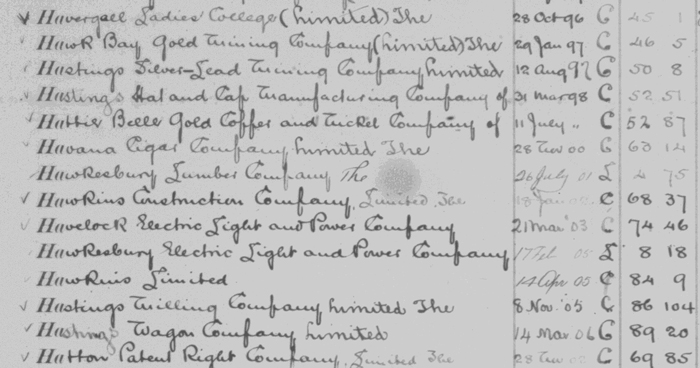 ✓ Havergall Ladies College (Limited) The 28 Oct 96 C 45 1
Hawk Bay Gold Mining Company (Limited) The 29 Jan 97 C 46 5
✓ Hastings Silver-Lead Mining Company Limited 12 Aug 97 C 50 8
Hastings Hat and Cap Manufacturing Company of 31 Mar 98 C 52 51
✓ Hattie Belle Gold Copper and Nickel Company of 11 July " C 52 87
Havana Cigar Company Limited The 28 00 C 63 14
Hawkesbury Lumber Company The 26 July 01 L 4 75
✓ Hawkins Construction Company, Limited The 18 Jan C 68 37
✓ Havelock Electric Light and Power Company 21 Mar 03 C 74 46
Hawkesbury Electric Light and Power Company 05 L 8 18
Hawkins Limited 14 Apr 05 C 84 9
✓ Hastings Milling Company Limited The 8 Nov. 05 C 86 104
✓ Hastings Wagon Company Limited 14 Mar 06 C 89 20
✓ Hatton Patent Right Company, Limited The 28 C 69 85